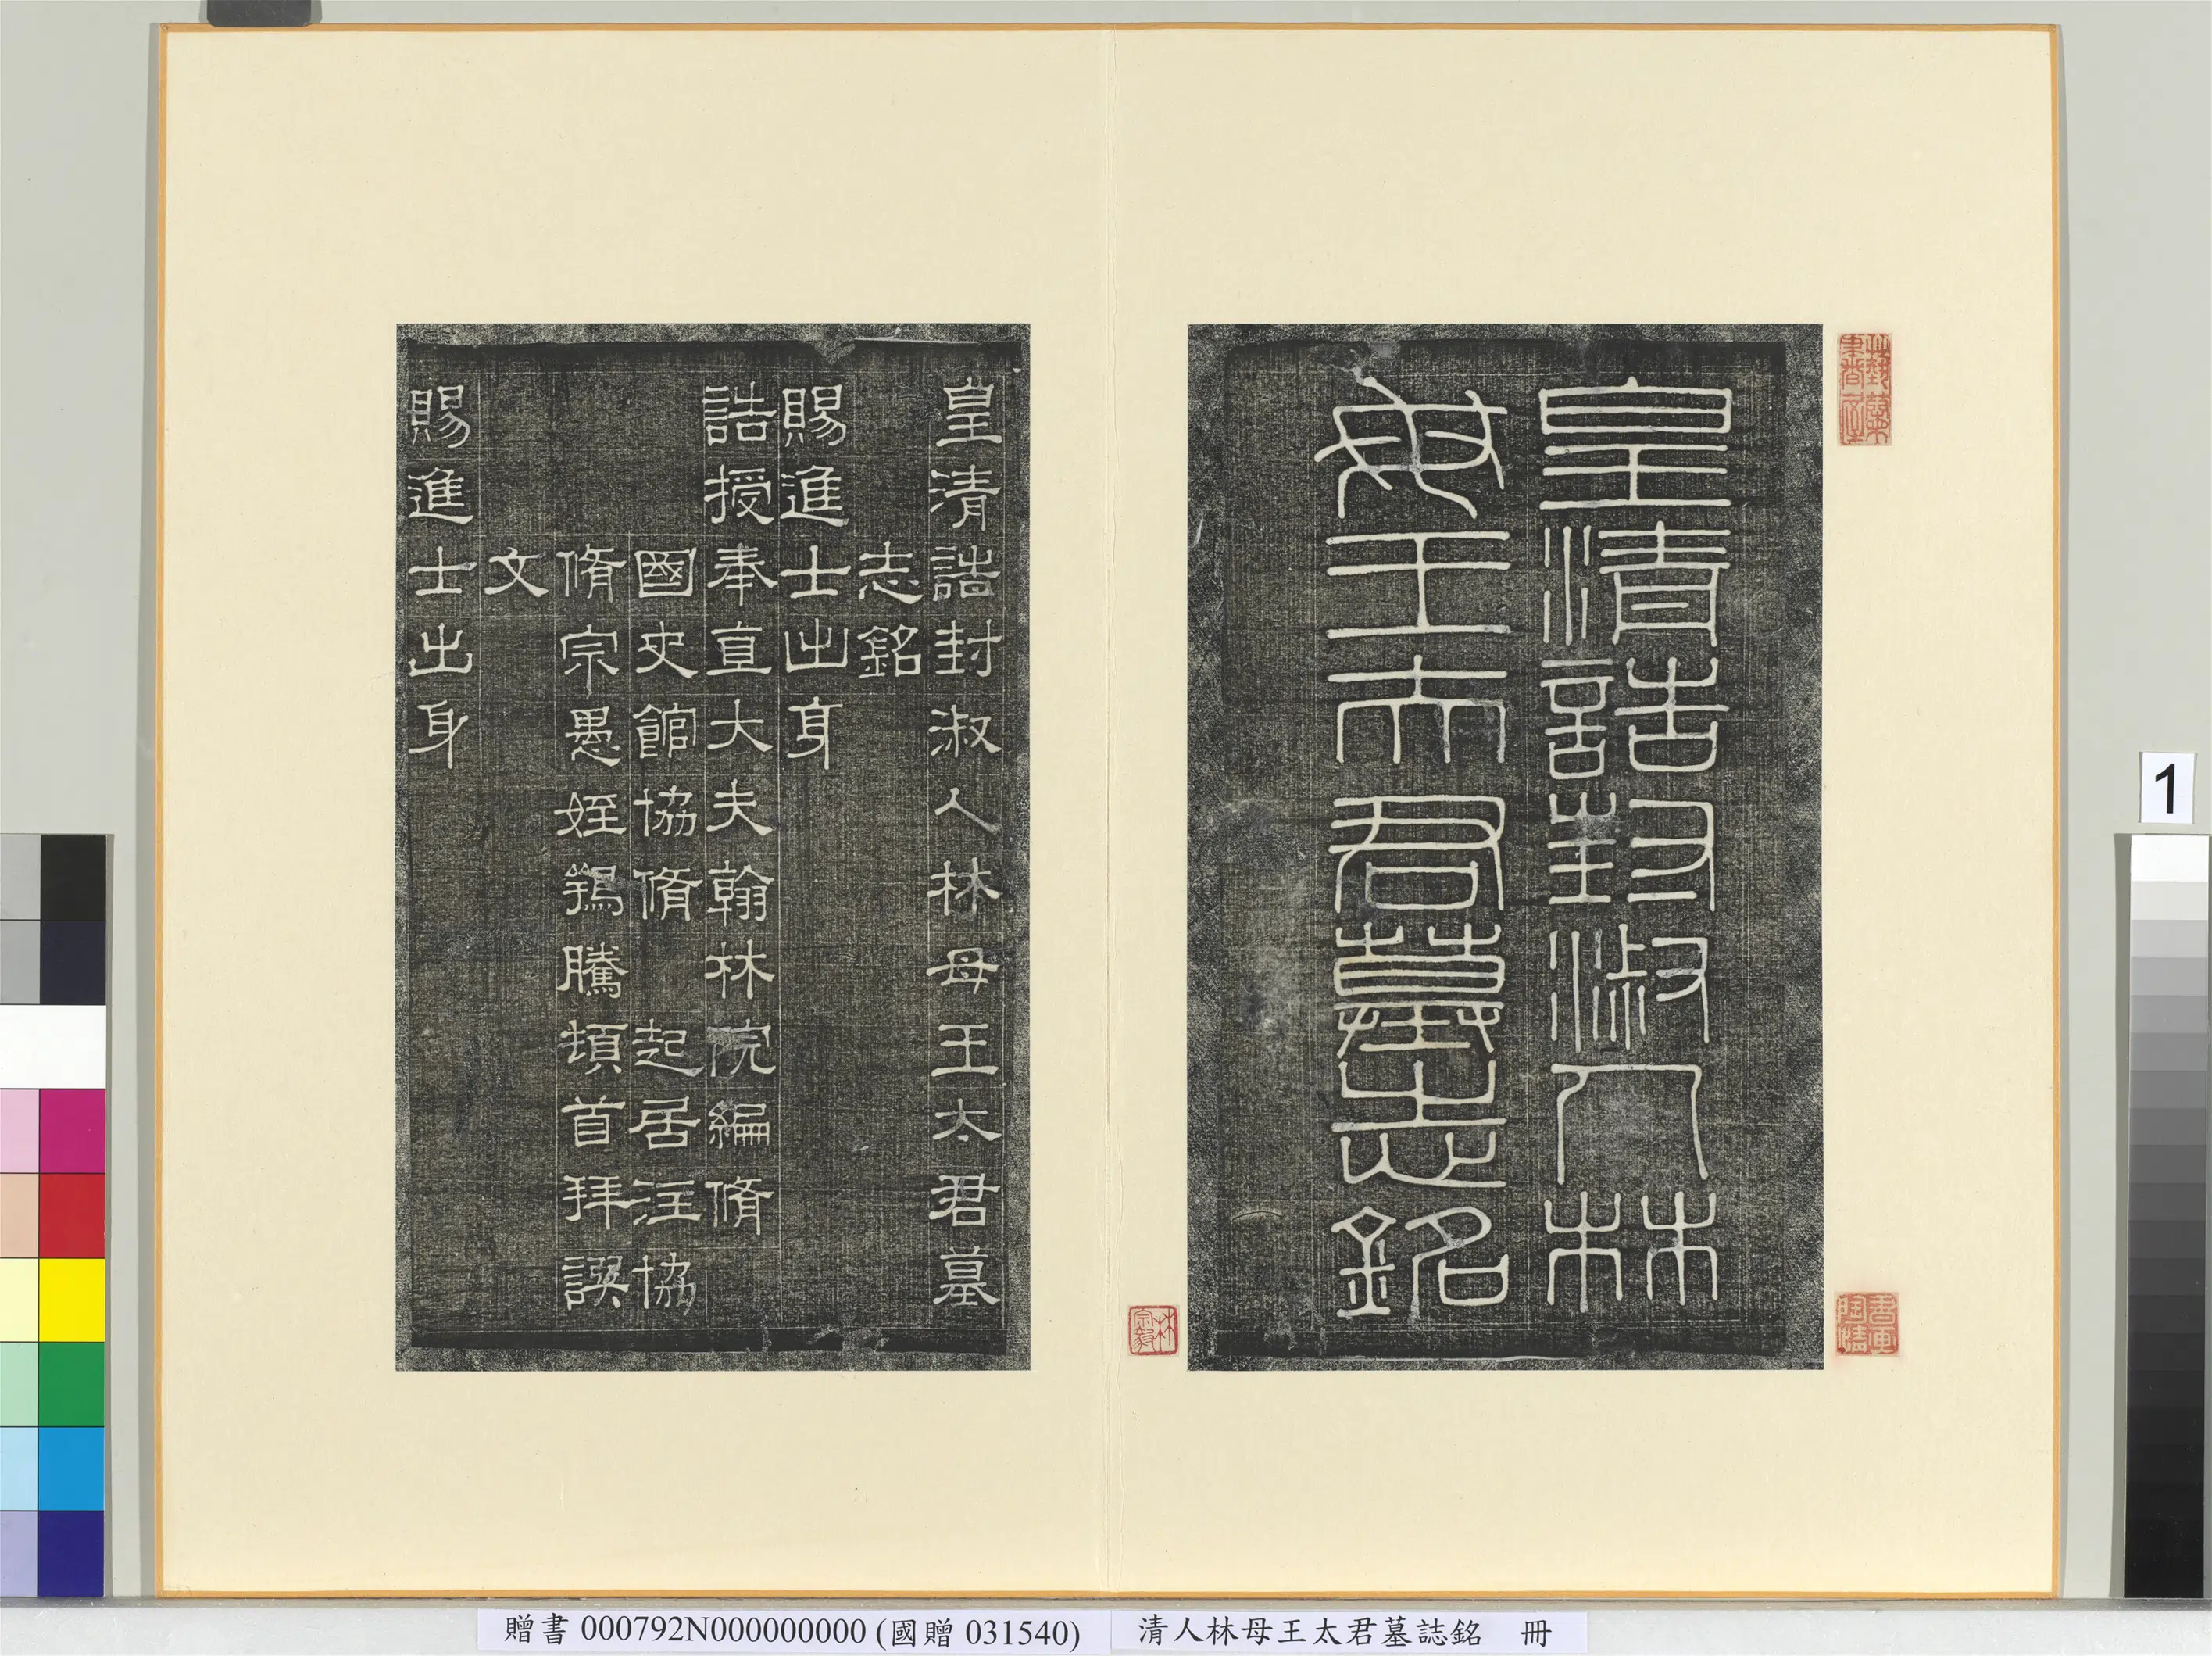 皇清誥封淑人林
母王太君墓志銘
皇清誥封淑人林母王太君墓
志銘
賜進士出身
誥授奉直大夫翰林院編脩
國史館協脩 起居注協
脩宗愚姪鴻騰頓首拜譔
文
賜進士出身
林宗毅
1
贈書 000792N000000000 (國贈 031540)
清人林母王太君墓誌銘 冊